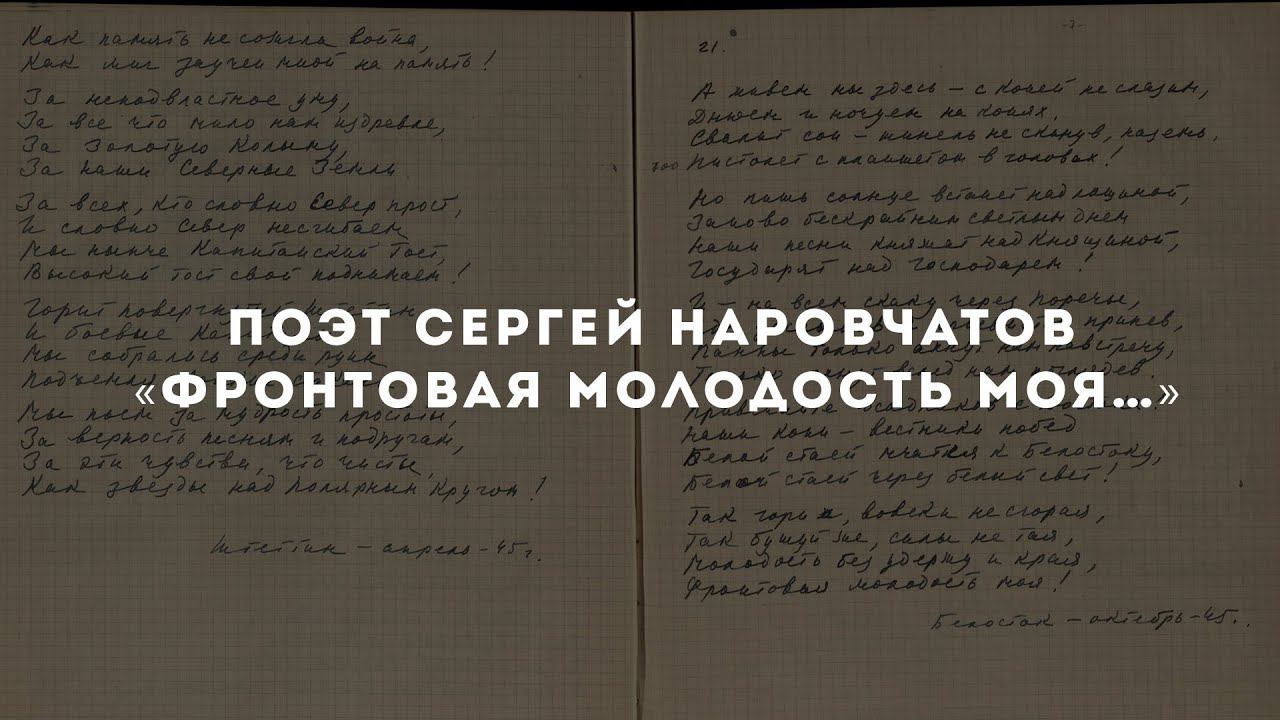 Как память не сожгла война,
Как миг заучен мной на память!
За неподвластное уму,
За все что мило нам издревле,
За Золотую Колыму,
За наши Северные Земли
За всех, кто словно Север прост,
И словно Север несгибаем
Мы нынче Капитанский Тост,
Высокий тост свой поднимаем!
Горит
И боевые
Мы собрались среди руин
Мы пьем за мудрость простоты,
За верность песням и подругам,
За эти чувства, что чисты,
Как звезды над Полярным Кругом!
Штеттин – апрель – 45 г.
-7-
21.
А живем мы здесь – с коней не слазим,
Днюем и ночуем на конях,
Свалит сон – шинель не скинув, наземь,
Пистолет с планшетом в головах!
Но лишь солнце встанет над лощиной,
Заново бескрайним светлым днем
Наши песни княжат над Княщиной,
Государят над Господарем!
И – на всем скаку через Поречье,
припев,
Панны только ахнут нам навстречу,
Наши кони – вестники побед
Белой стаей мчатся к Белостоку,
Белой стаей через белый свет!
Так гори ж, вовеки не сгорая,
Так бушуй же, силы не тая,
Молодость без удержу и края,
Фронтовая молодость моя!
Белосток – октябрь – 45.
ПОЭТ СЕРГЕЙ НАРОВЧАТОВ
«ФРОНТОВАЯ МОЛОДОСТЬ МОЯ...»